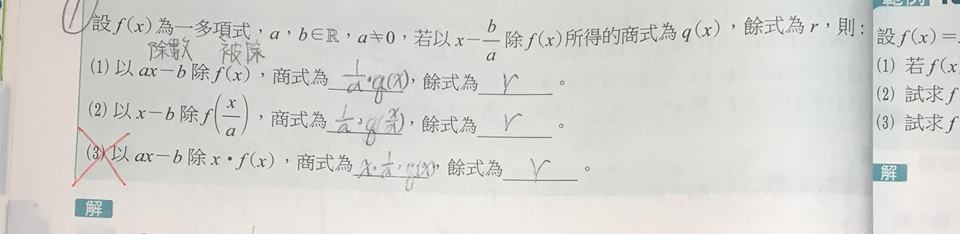 (1)
設 f(x) 為一多項式，a，b∈ℝ，a≠0，若以 x－b/a 除 f(x) 所得的商式為 q(x)，餘式為 r，則：
除數 被除
(1) 以 ax－b 除 f(x)，商式為 1/a·q(x)，餘式為 r 。
(2) 以 x－b 除 f(x/a)，商式為 1/a·q(x/a)，餘式為 r 。
(3) 以 ax－b 除 x·f(x)，商式為 x·1/a·q(x)，餘式為 r 。
解
設 f(x)＝
(1) 若 f(x
(2) 試求 f
(3) 試求 f
解